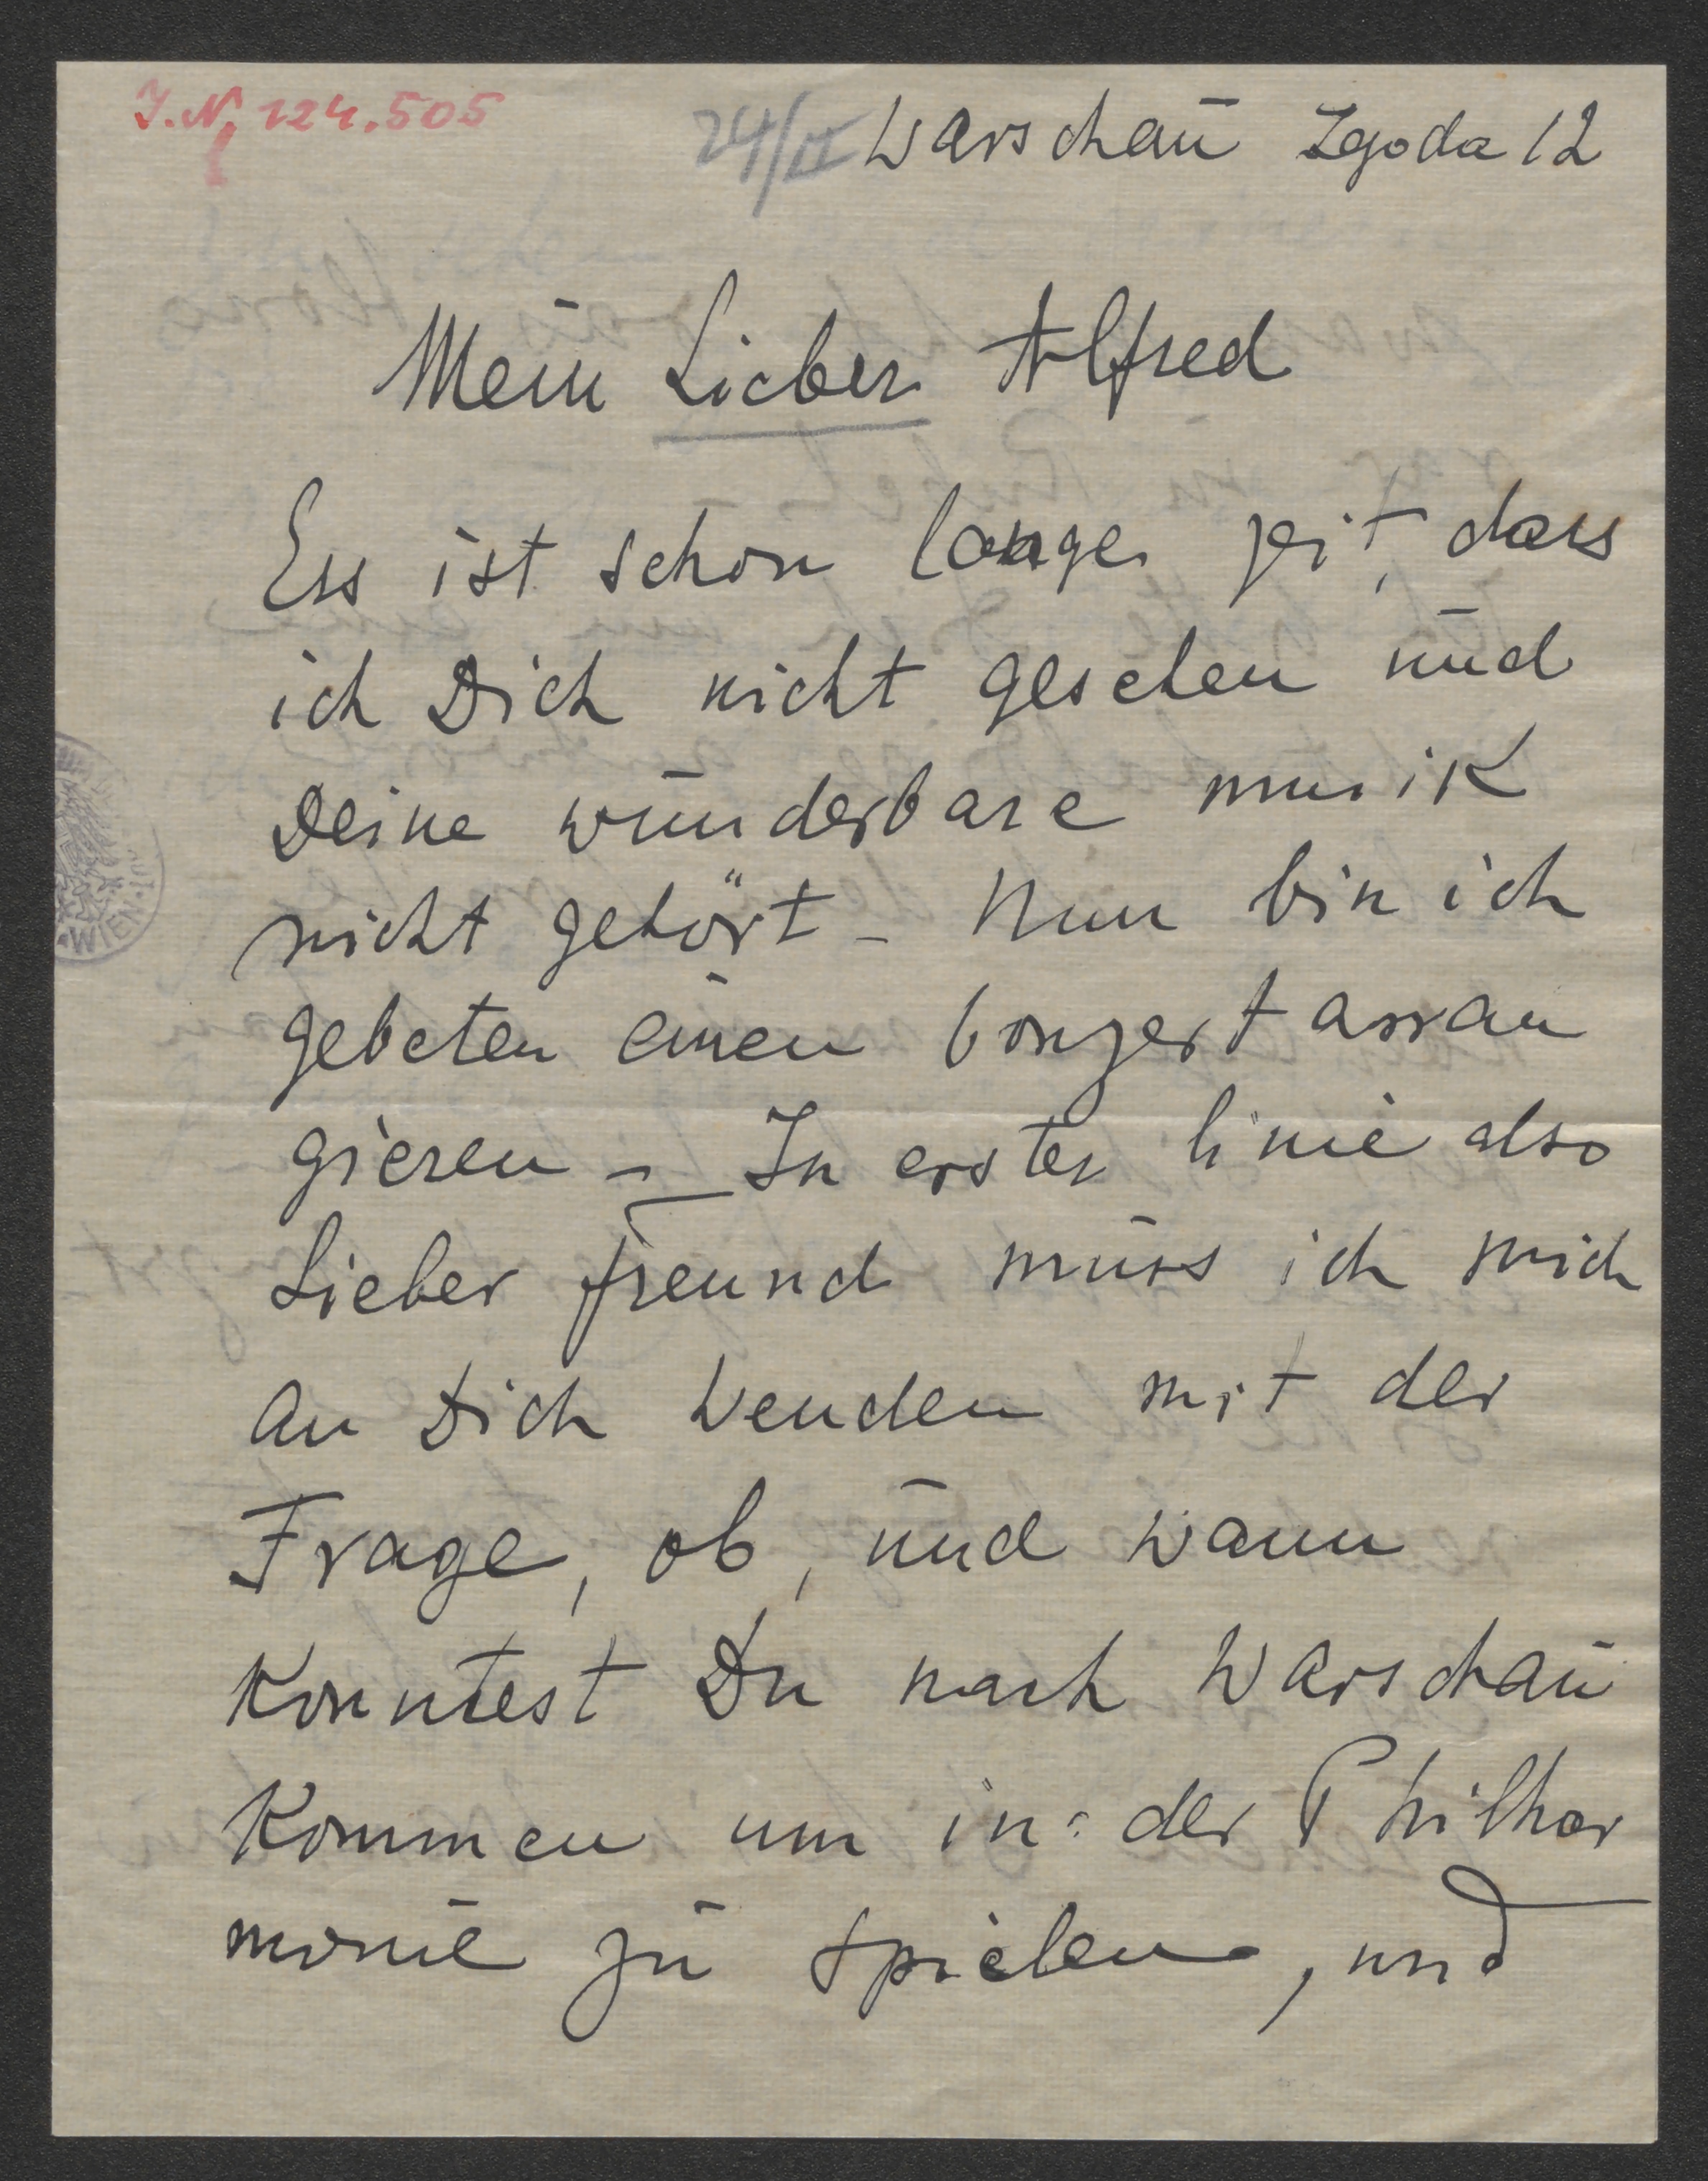 J.N. 124.505
24/II Warschau Zgoda 12
Mein Lieber Alfred
Ess ist schon lange zeit, dass
ich Dich nicht gesehen und
Deine wunderbare musik
nicht gehört – Nun bin ich
gebeten einen Conzert arran
gieren – In erster linie also
Lieber freund muss ich mich
an Dich wenden mit der
Frage, ob, und wann
Konntest Du nach Warschau
Kommen um in der Philhar
monie zu spielen, und
WIEN